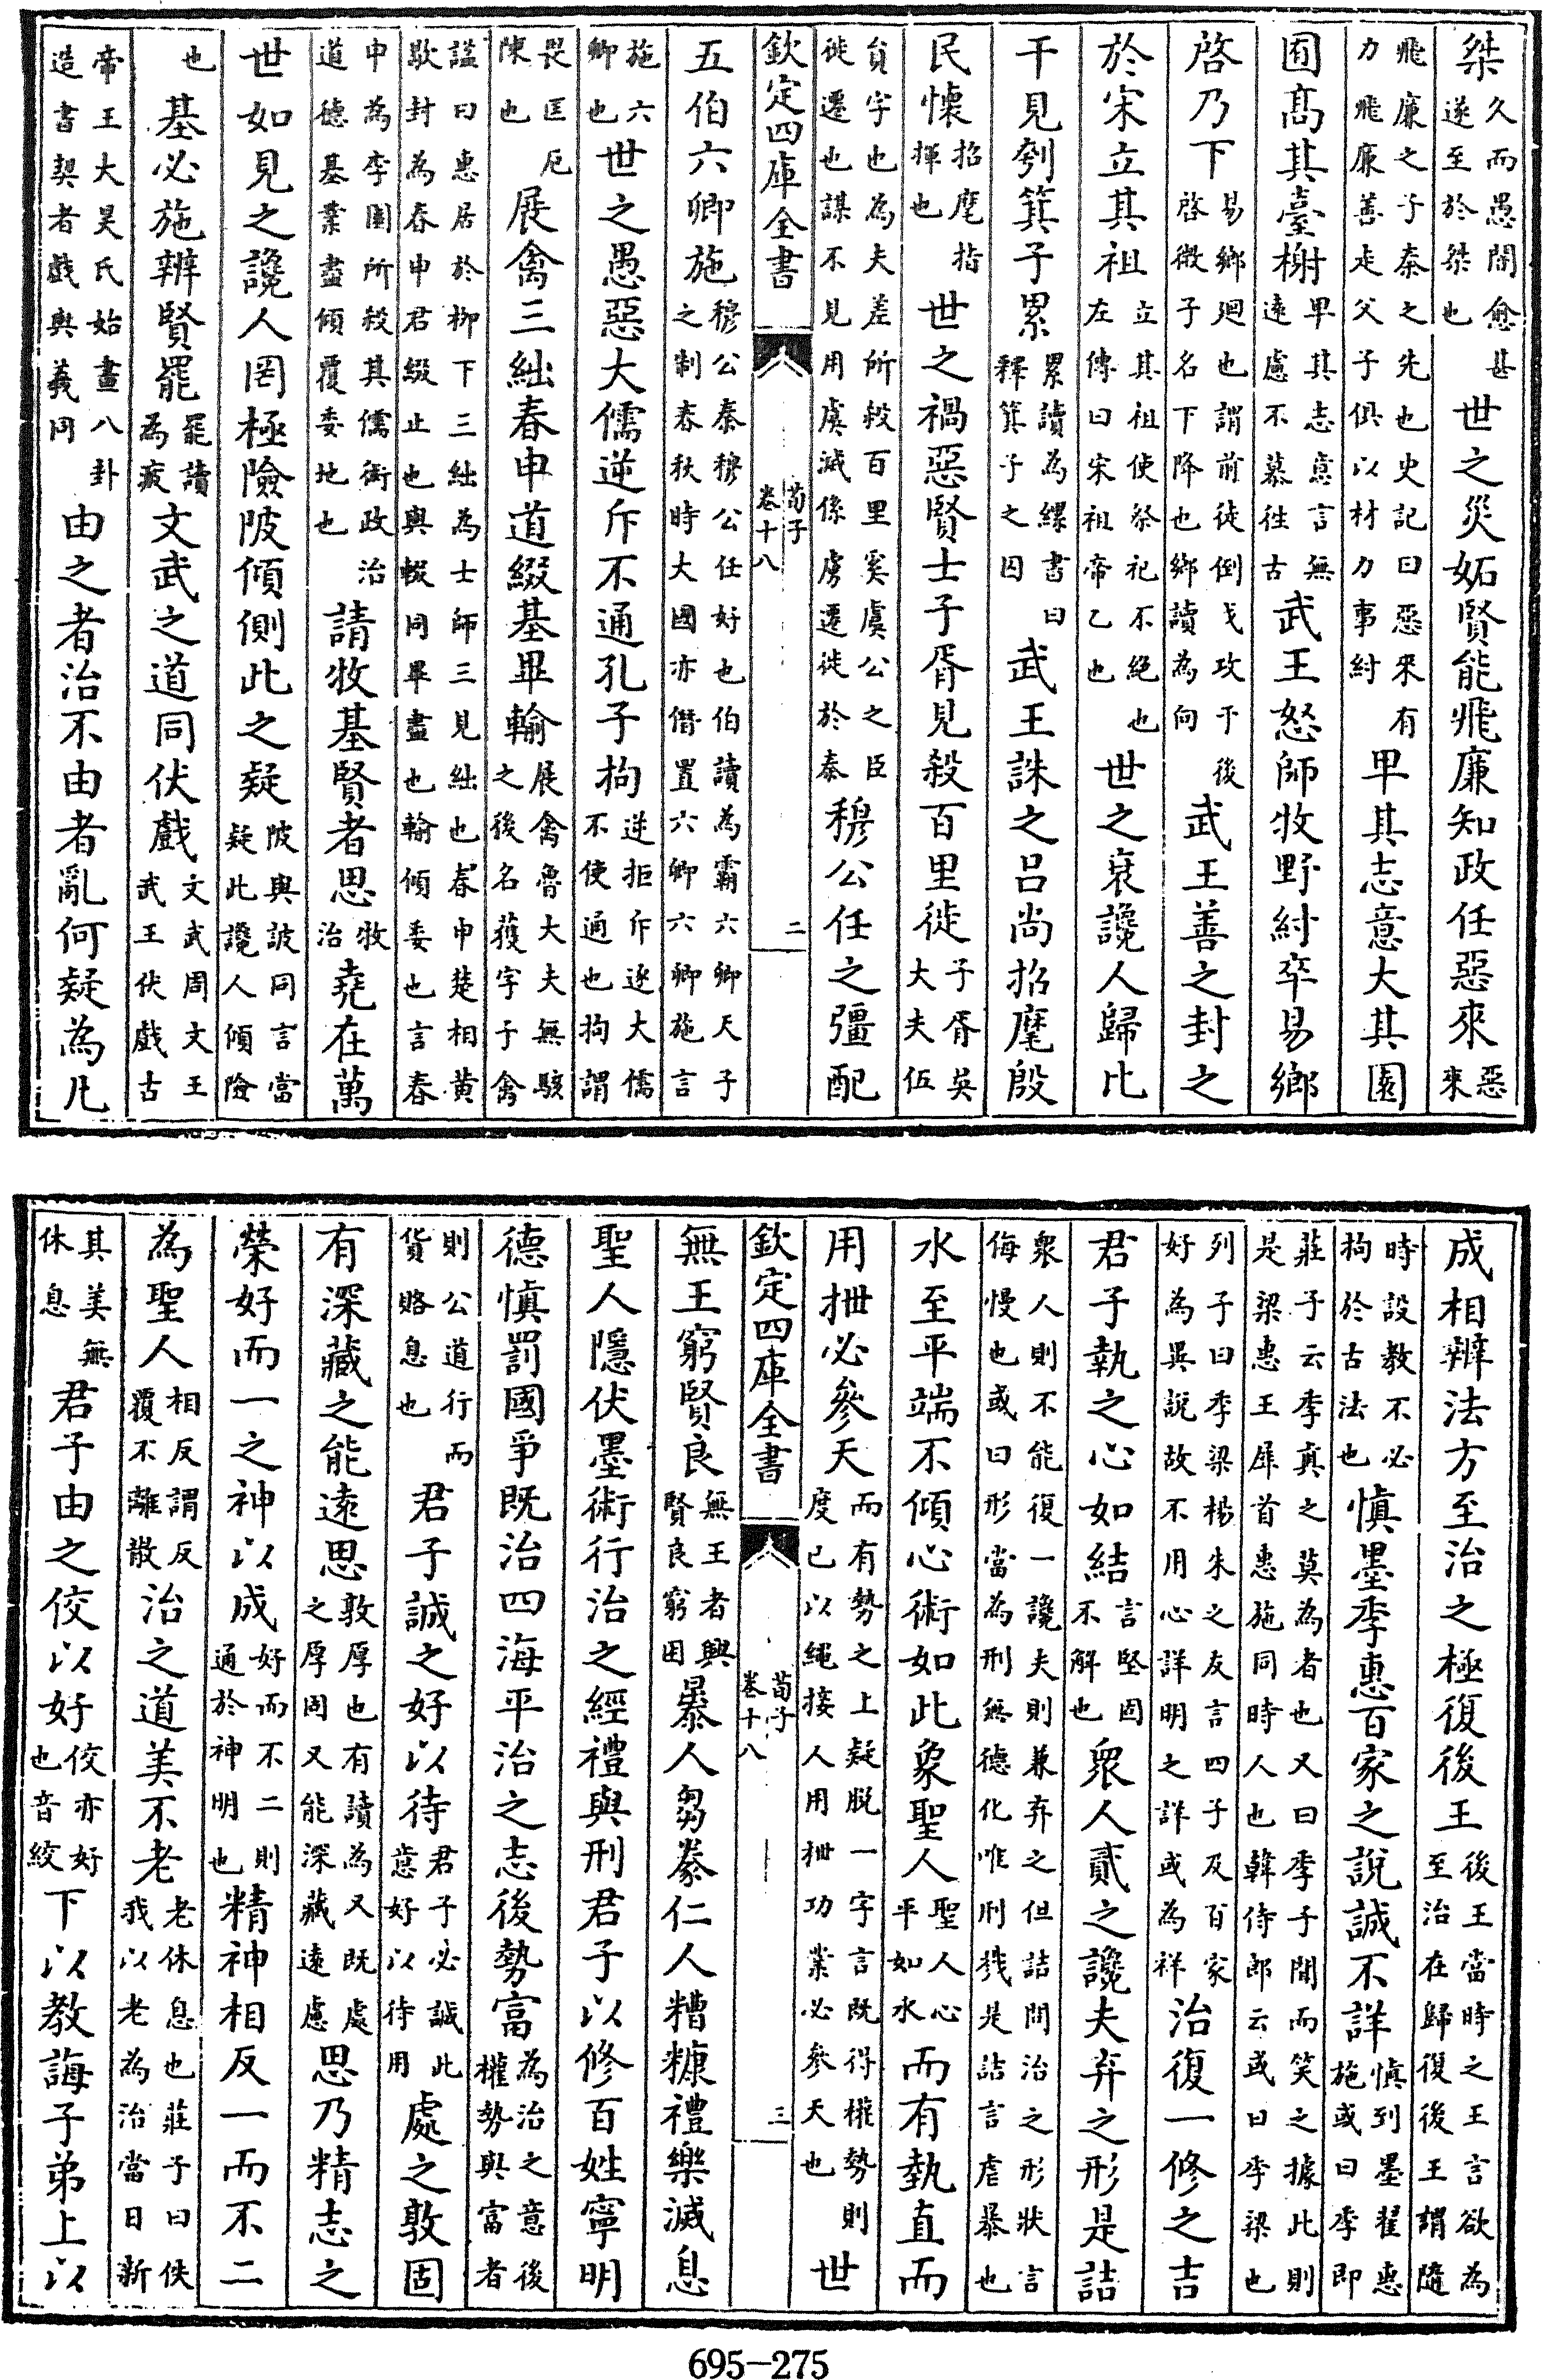 桀久而愚闇愈甚遂至於桀也世之災妬賢能飛廉知政任惡來惡來
飛廉之子秦之先也史記曰惡來有力飛廉善走父子俱以材力事紂卑其志意大其園
囿髙其臺榭卑其志意言無逺慮不慕徃古武王怒師牧野紂卒易鄉
啓乃下易鄉廻也謂前徒倒戈攻于後啓微子名下降也鄉讀為向武王善之封之
於宋立其祖立其祖使祭祀不絶也左傳曰宋祖帝乙也世之衰讒人歸比
干見刳箕子累累讀為縲書曰釋箕子之囚武王誅之吕尚招麾殷
民懷招麾指揮也世之禍惡賢士子胥見殺百里徙子胥吳大夫伍
員字也為夫差所殺百里奚虞公之臣徙遷也謀不見用虞滅係虜遷徙於秦穆公任之彊配
欽定四庫全書
荀子
卷十八
二
五伯六卿施穆公秦穆公任好也伯讀為霸六卿天子之制春秋時大國亦僭置六卿六卿施言
施六卿也世之愚惡大儒逆斥不通孔子拘逆拒斥逐大儒不使通也拘謂
畏匡厄陳也展禽三絀春申道綴基畢輸展禽魯大夫無駭之後名獲字子禽
諡曰惠居於柳下三絀為士師三見絀也春申楚相黄歇封為春申君綴止也與輟同畢盡也輸傾委也言春
申為李園所殺其儒術政治道德基業盡傾覆委地也請牧基賢者思牧治堯在萬
世如見之讒人罔極險陂傾側此之疑陂與詖同言當疑此讒人傾險
也基必施辨賢罷罷讀為疲文武之道同伏戲文武周文王武王伏戲古
帝王大昊氏始畫八卦造書契者戲與羲同由之者治不由者亂何疑為凡
成相辨法方至治之極復後王後王當時之王言欲為至治在歸復後王謂隨
時設教不必拘於古法也慎墨季惠百家之說誠不詳慎到墨翟惠施或曰季即
莊子云季真之莫為者也又曰季子聞而笑之據此則是梁惠王犀首惠施同時人也韓侍郎云或曰季梁也
列子曰季梁楊朱之友言四子及百家好為異說故不用心詳明之詳或為祥治復一修之吉
君子執之心如結言堅固不解也衆人貳之讒夫弃之形是詰
衆人則不能復一讒夫則兼弃之但詰問治之形狀言侮慢也或曰形當為刑無德化唯刑戮是詰言虐暴也
水至平端不傾心術如此象聖人聖人心平如水而有執直而
用抴必參天而有勢之上疑脱一字言既得權勢則度己以繩接人用抴功業必參天也世
欽定四庫全書
荀子
卷十八
三
無王窮賢良無王者興賢良窮困暴人芻豢仁人糟糠禮樂滅息
聖人隱伏墨術行治之經禮與刑君子以修百姓寧明
德慎罰國爭既治四海平治之志後勢富為治之意後權勢與富者
則公道行而貨賂息也君子誠之好以待君子必誠此意好以待用處之敦固
有深藏之能逺思敦厚也有讀為又既處之厚固又能深藏逺慮思乃精志之
榮好而一之神以成好而不二則通於神明也精神相反一而不二
為聖人相反謂反覆不離散治之道美不老老休息也莊子曰佚我以老為治當日新
其美無休息君子由之佼以好佼亦好也音絞下以教誨子弟上以
695-275